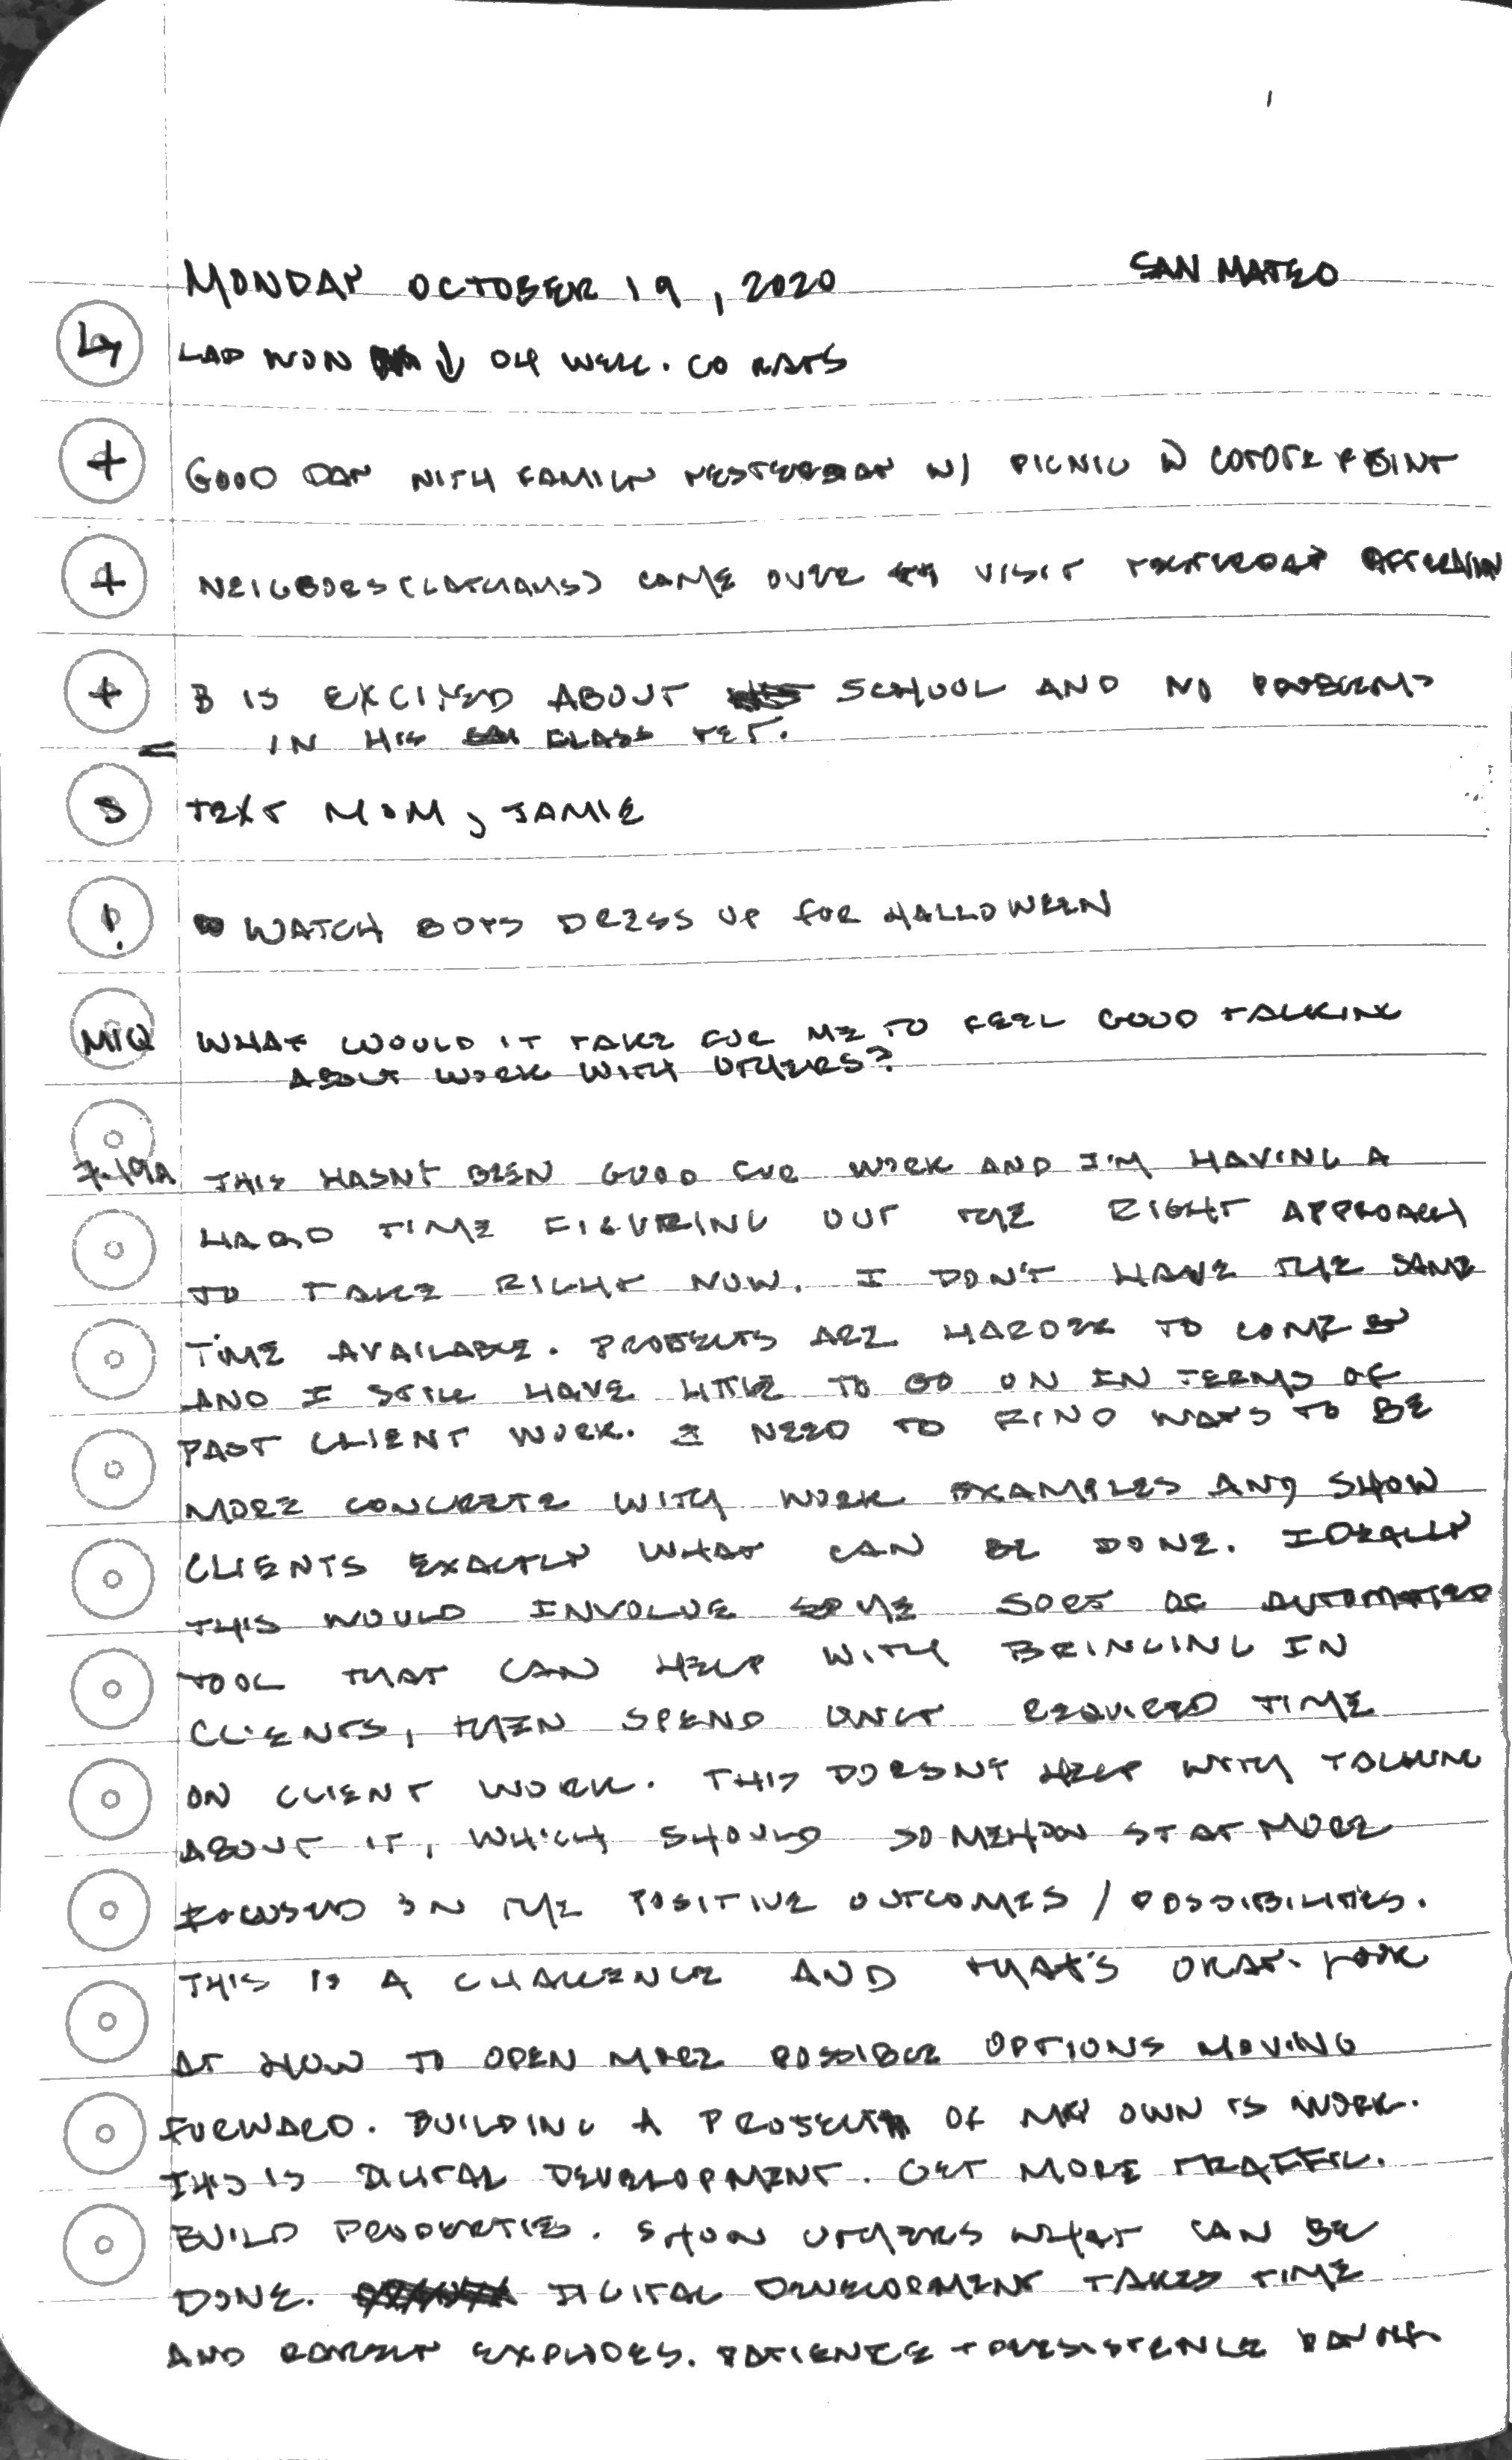 MONDAY OCTOBER 19, 2020 SAN MATEO
L7 LAD WON ↓ 04 WELL. CO RATS
+ GOOD DAY WITH FAMILY YESTERDAY W/ PICNIC @ COYOTE POINT
+ NEIGBORS (LATHAMS) CAME OVER VISIT YESTERDAY AFTERNOON
+ B IS EXCITED ABOUT SCHOOL AND NO PROBLEMS
= IN HIS CLASS YET.
S TEXT MOM, JAMIE
! WATCH BOYS DRESS UP FOR HALLOWEEN
MIQ WHAT WOULD IT TAKE FOR ME TO FEEL GOOD TALKING
ABOUT WORK WITH OTHERS?
7:19A THIS HASN'T BEEN GOOD FOR WORK AND I'M HAVING A
HARD TIME FIGURING OUT THE RIGHT APPROACH
TO TAKE RIGHT NOW. I DON'T HAVE THE SAME
TIME AVAILABLE. PROJECTS ARE HARDER TO COME BY
AND I STILL HAVE LITTLE TO GO ON IN TERMS OF
PAST CLIENT WORK. I NEED TO FIND WAYS TO BE
MORE CONCRETE WITH WORK EXAMPLES AND SHOW
CLIENTS EXACTLY WHAT CAN BE DONE. IDEALLY
THIS WOULD INVOLVE SOME SORT OF AUTOMATED
TOOL THAT CAN HELP WITH BRINGING IN
CLIENTS, THEN SPEND ONLY REQUIRED TIME
ON CLIENT WORK. THIS DOESNT HELP WITH TALKING
ABOUT IT, WHICH SHOULD SOMEHOW STAY MORE
FOCUSED ON THE POSITIVE OUTCOMES / POSSIBILITIES.
THIS IS A CHALLENGE AND THAT'S OKAY. LOOK
AT HOW TO OPEN MORE POSSIBLE OPTIONS MOVING
FORWARD. BUILDING A PROJECT OF MY OWN IS WORK.
THIS IS DIGITAL DEVELOPMENT. GET MORE TRAFFIC.
BUILD PROPERTIES. SHOW OTHERS WHAT CAN BE
DONE. DIGITAL DEVELOPMENT TAKES TIME
AND RARELY EXPLODES. PATIENCE + PERSISTENCE PAY OFF